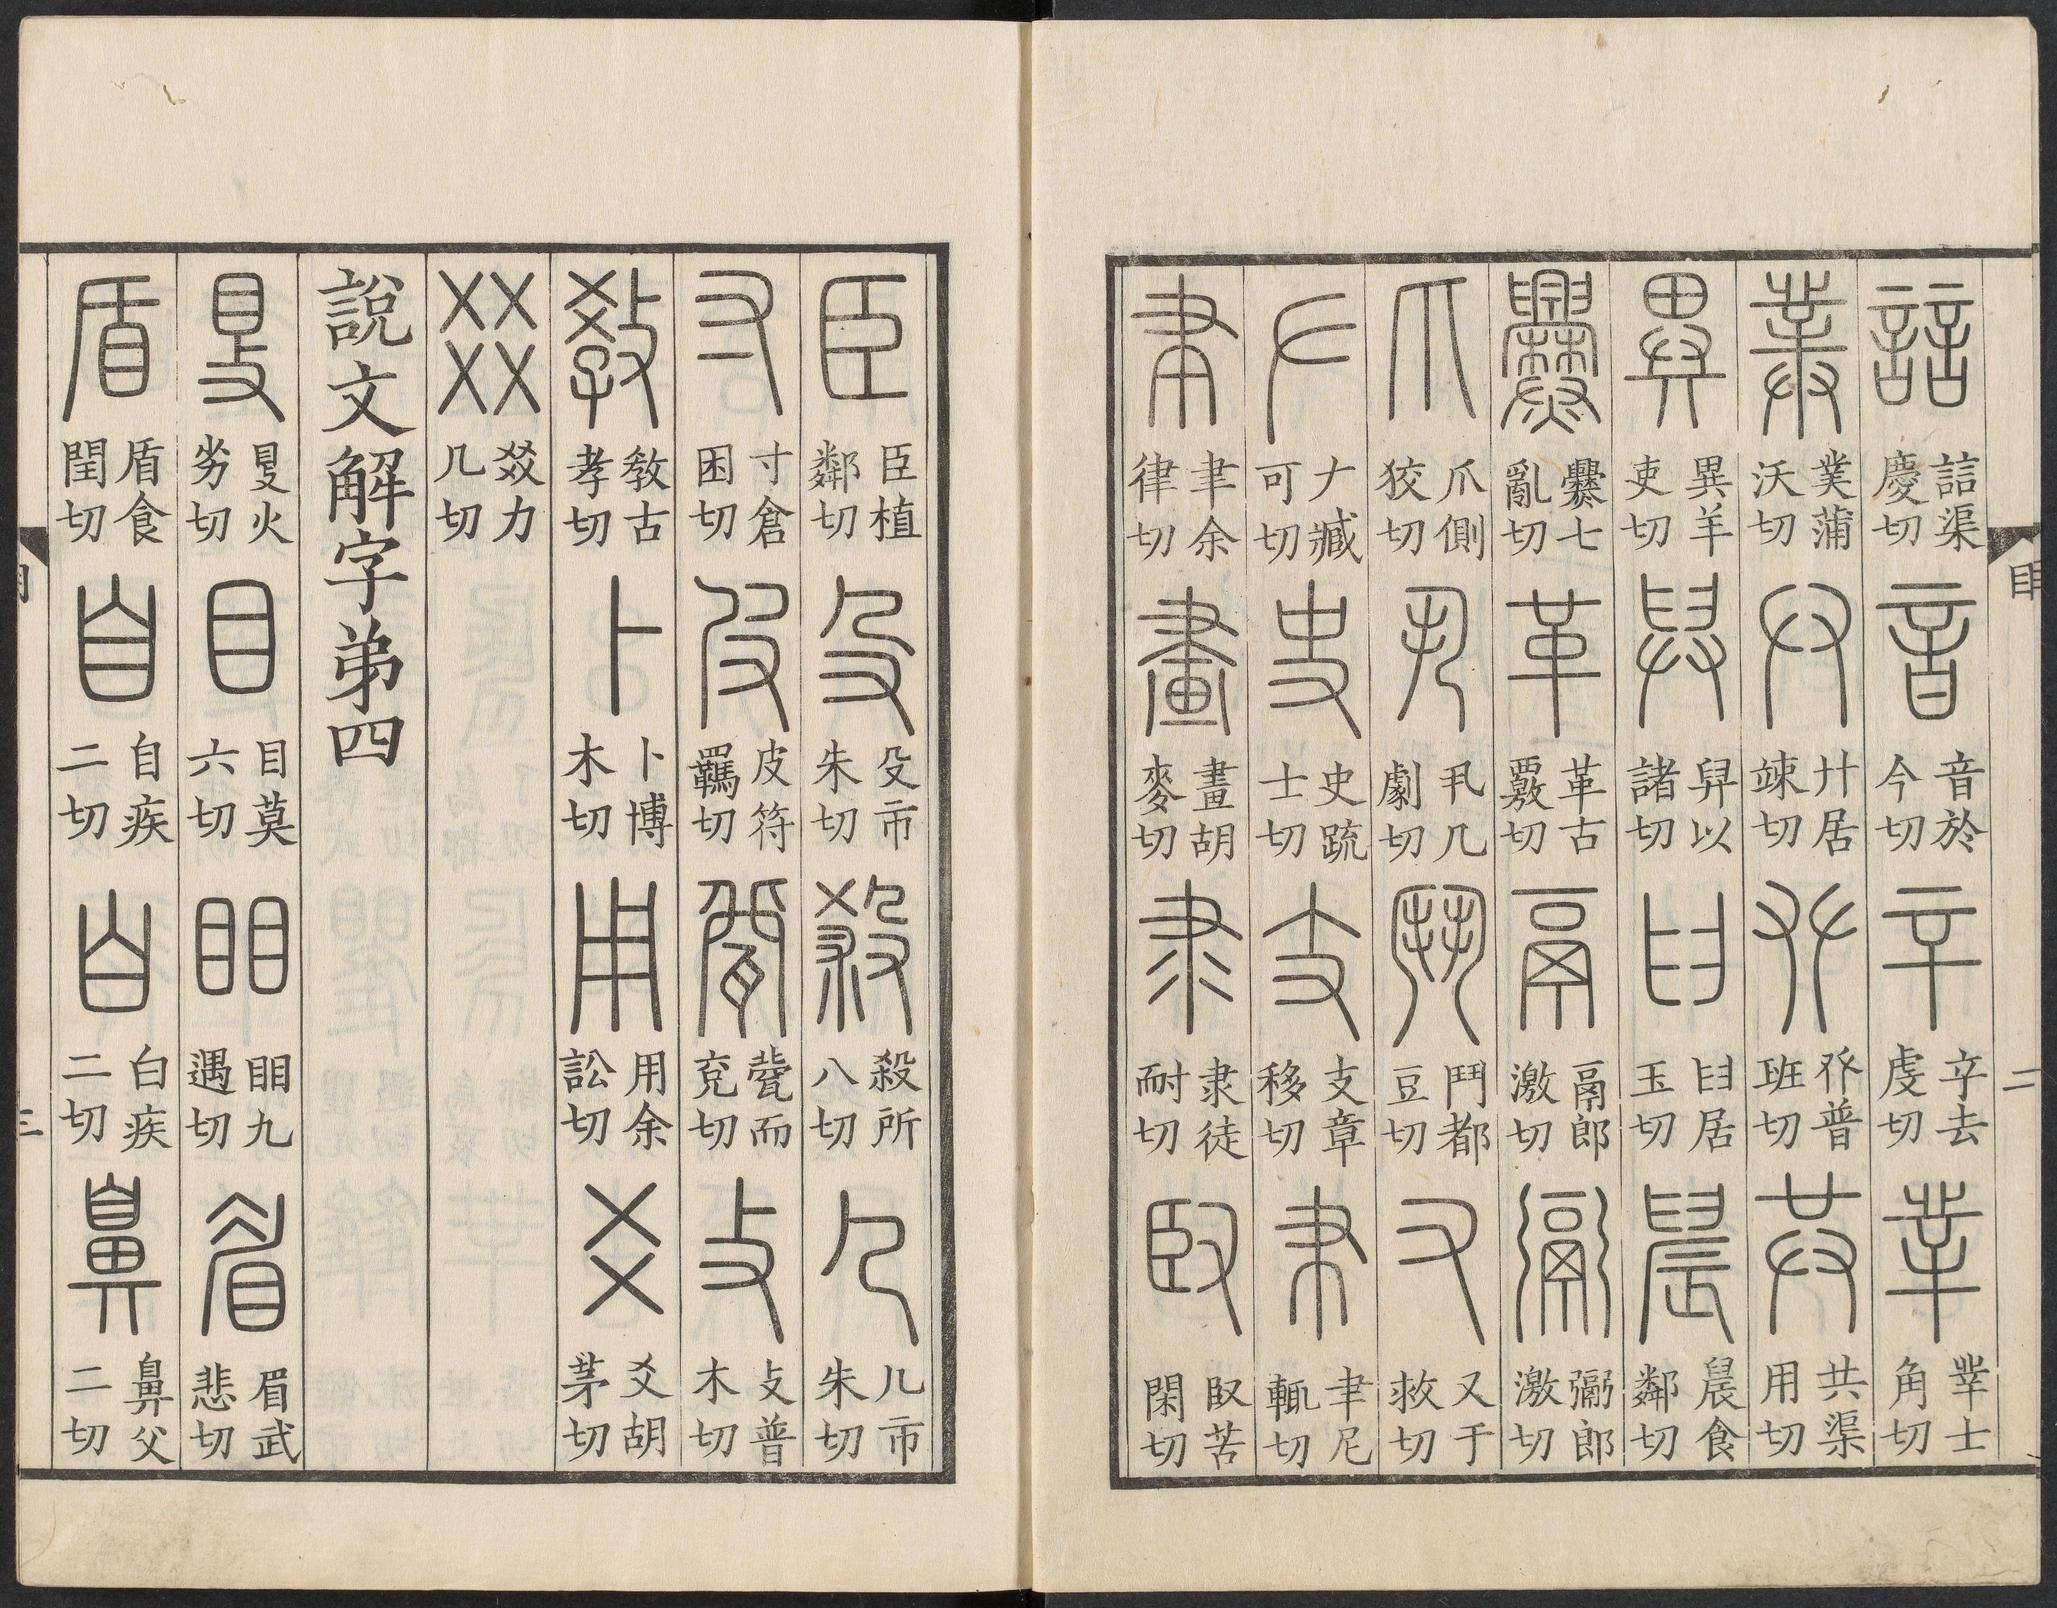 誩 誩渠慶切 音 音於今切 䇂 䇂去虔切 丵 丵士角切
菐 菐蒲沃切 廾 廾居竦切 𠬜 𠬜普班切 共 共渠用切
異 異羊吏切 舁 舁以諸切 𦥑 𦥑居玉切 䢅 䢅食鄰切
爨 爨七亂切 革 革古覈切 鬲 鬲郎激切 䰜 䰜郎激切
爪 爪側狡切 丮 丮几劇切 鬥 鬥都豆切 又 又于救切
𠂇 𠂇臧可切 史 史疏士切 支 支章移切 𦘒 𦘒尼輒切
聿 聿余律切 畫 畫胡麥切 隶 隶徒耐切 臤 臤苦閑切
目 二
臣 臣植鄰切 殳 殳市朱切 殺 殺所八切 𠘧 𠘧市朱切
寸 寸倉困切 皮 皮符羈切 㼱 㼱而兗切 攴 攴普木切
敎 敎古孝切 卜 卜博木切 用 用余訟切 爻 爻胡茅切
㸚 㸚力几切
說文解字弟四
𥄎 𥄎火劣切 目 目莫六切 䀠 䀠九遇切 眉 眉武悲切
盾 盾食閏切 自 自疾二切 白 白疾二切 鼻 鼻父二切
目 三